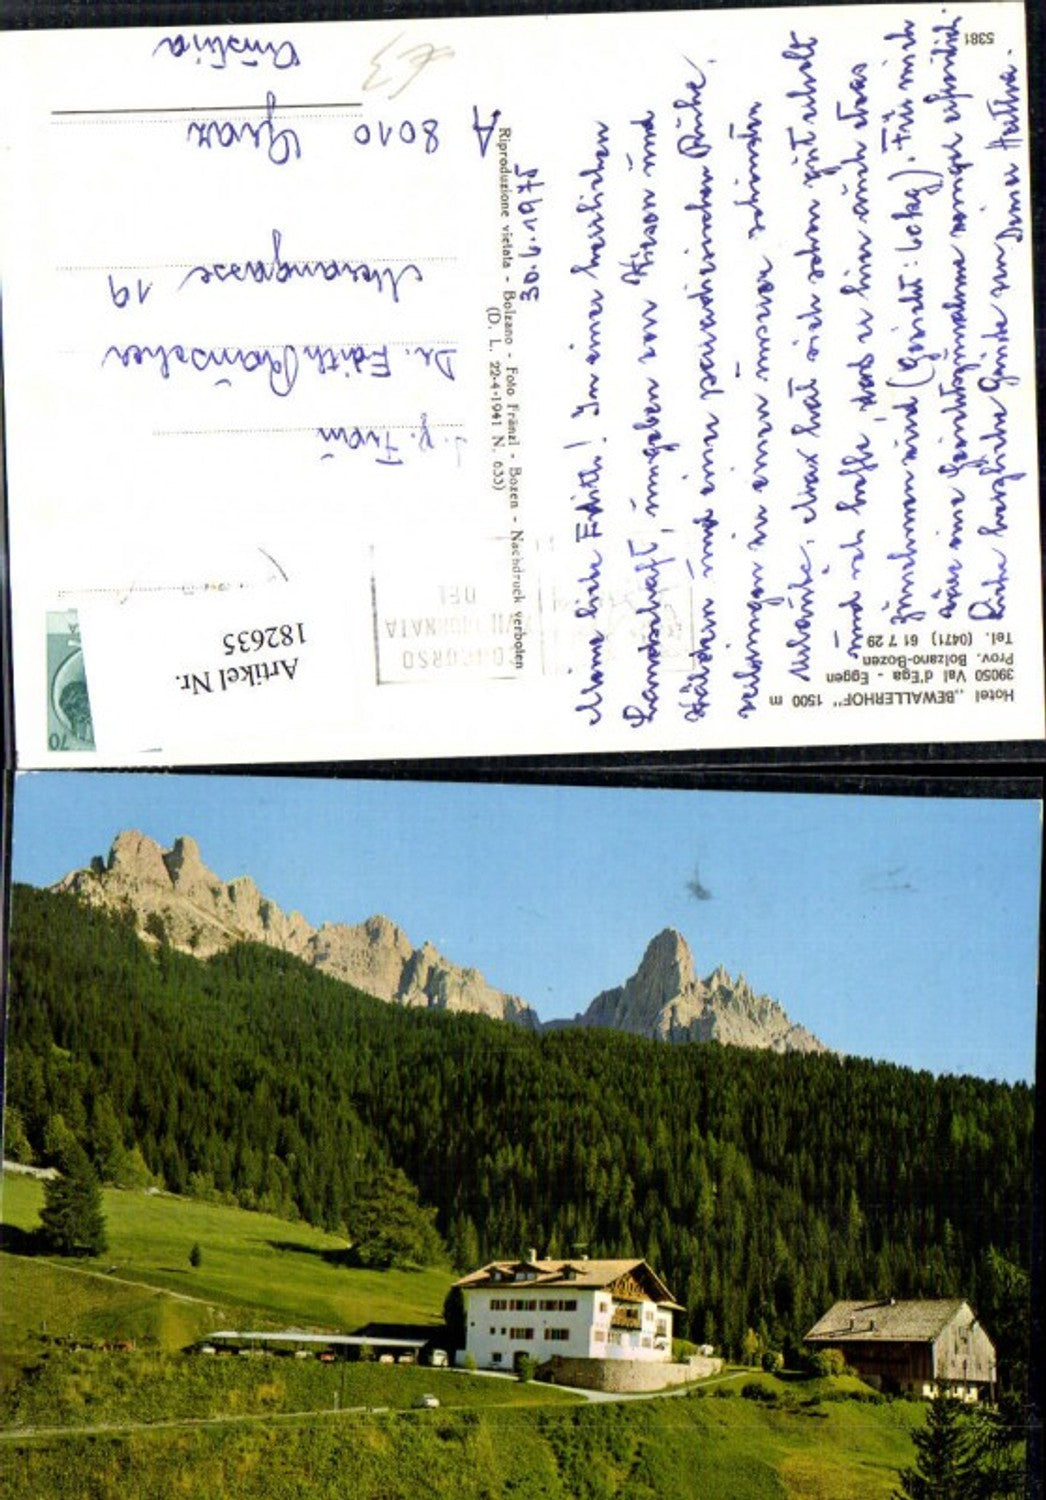 Hotel „BEWALLERHOF" 1500 m
39050 Val d'Ega - Eggen
Prov. Bolzano-Bozen
Tel. (0471) 61 7 29
5381
30.6.1975
Meine liebe Edith! In einer herrlichen
Landschaft, umgeben von Wiesen und
Wäldern und einer paradiesischen Ruhe,
verbringen wir einen schönen
Urlaub. Max hat sich schon gut erholt
und ich hoffe, daß er hier auch etwas
zunehmen wird (Gewicht: 60 kg). Für mich
wäre eine Gewichtszunahme weniger erfreulich.
Liebe herzliche Grüße von Deiner Hertha.
Riproduzione vietata - Bolzano - Foto Fränzl - Bozen - Nachdruck verboten
(D. L. 22-4-1941 N. 633)
CONCORSO
GIORNATA
DEL
70
Artikel Nr.
182635
Frau
Dr. Edith
Merangasse 19
A 8010 Graz
Austria
€3